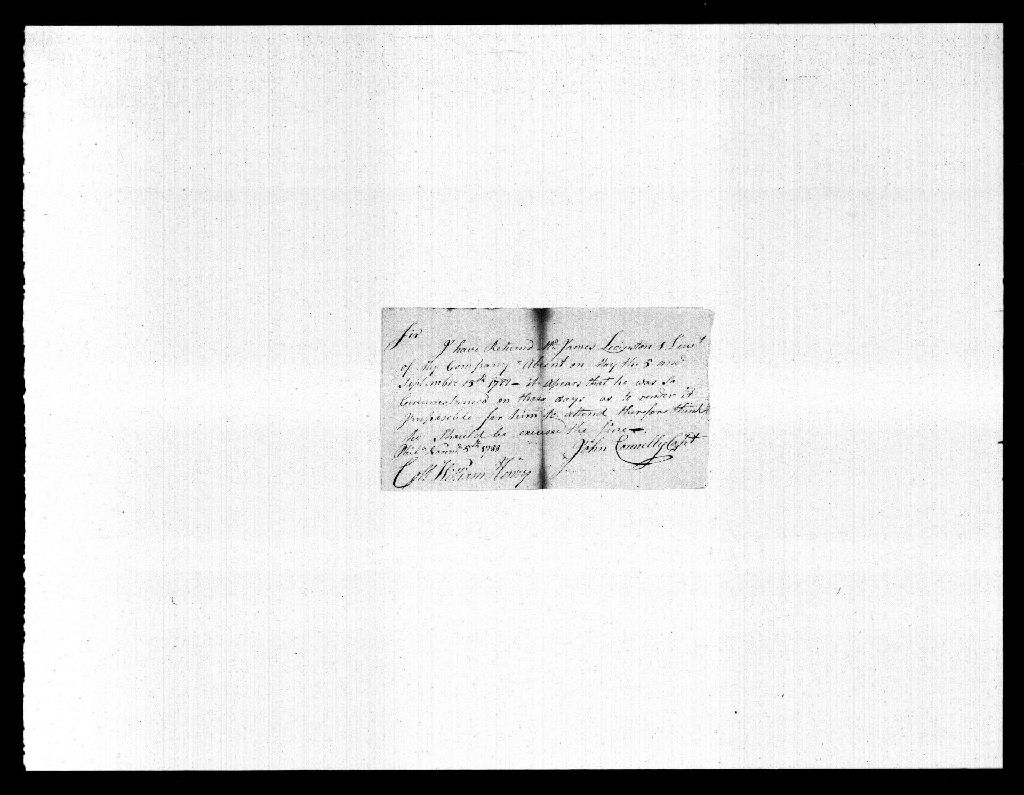 Sir
I have Returnd Mr. James Livgston 1 Leut
of My Company Absent on May the 5 and
September 15th 1787 – it apears that he was so
Circumstanced on those days as to render it
Imposeble for him to attend therefore think
he Should be excused the fine –
5th 1788 John Connelly Capt
Coll William Henry